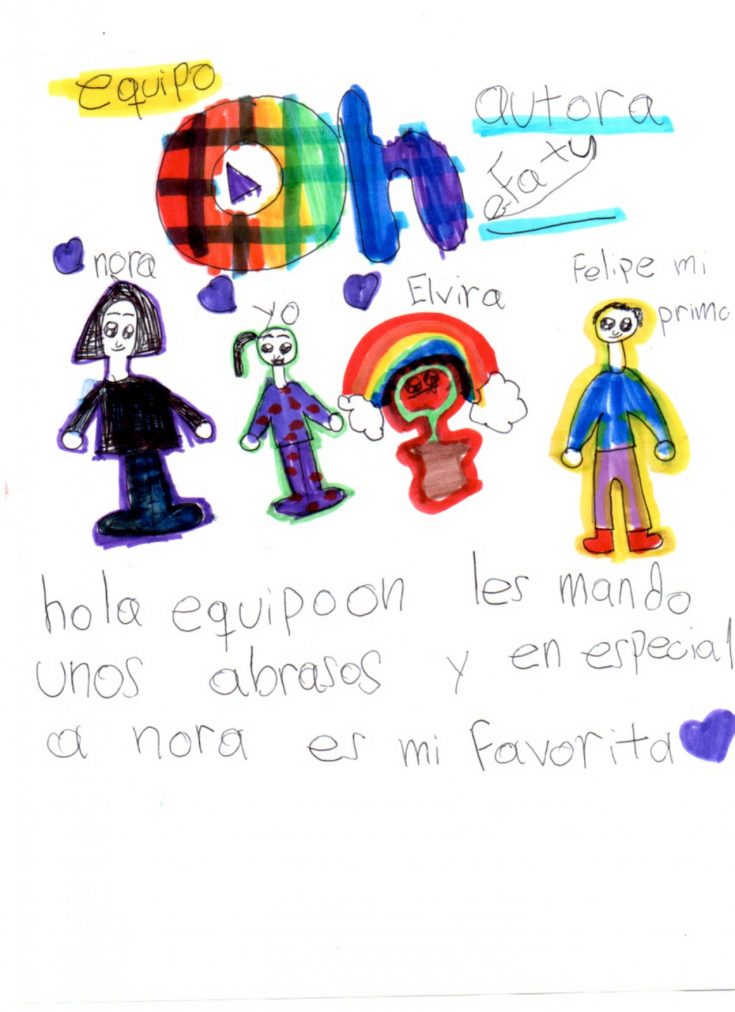 equipo
On
autora
Faty
nora
yo
Elvira
Felipe mi
primo
hola equipo on les mando
unos abrasos y en especial
a nora es mi favorita